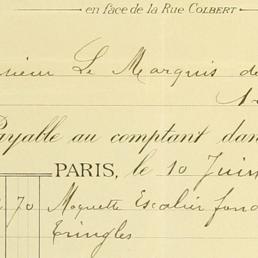 en face de la Rue COLBERT
sieur Le Marquis de
Payable au comptant dan
PARIS, le 10 Juin
70 Moquette Escalier fond
Tringles